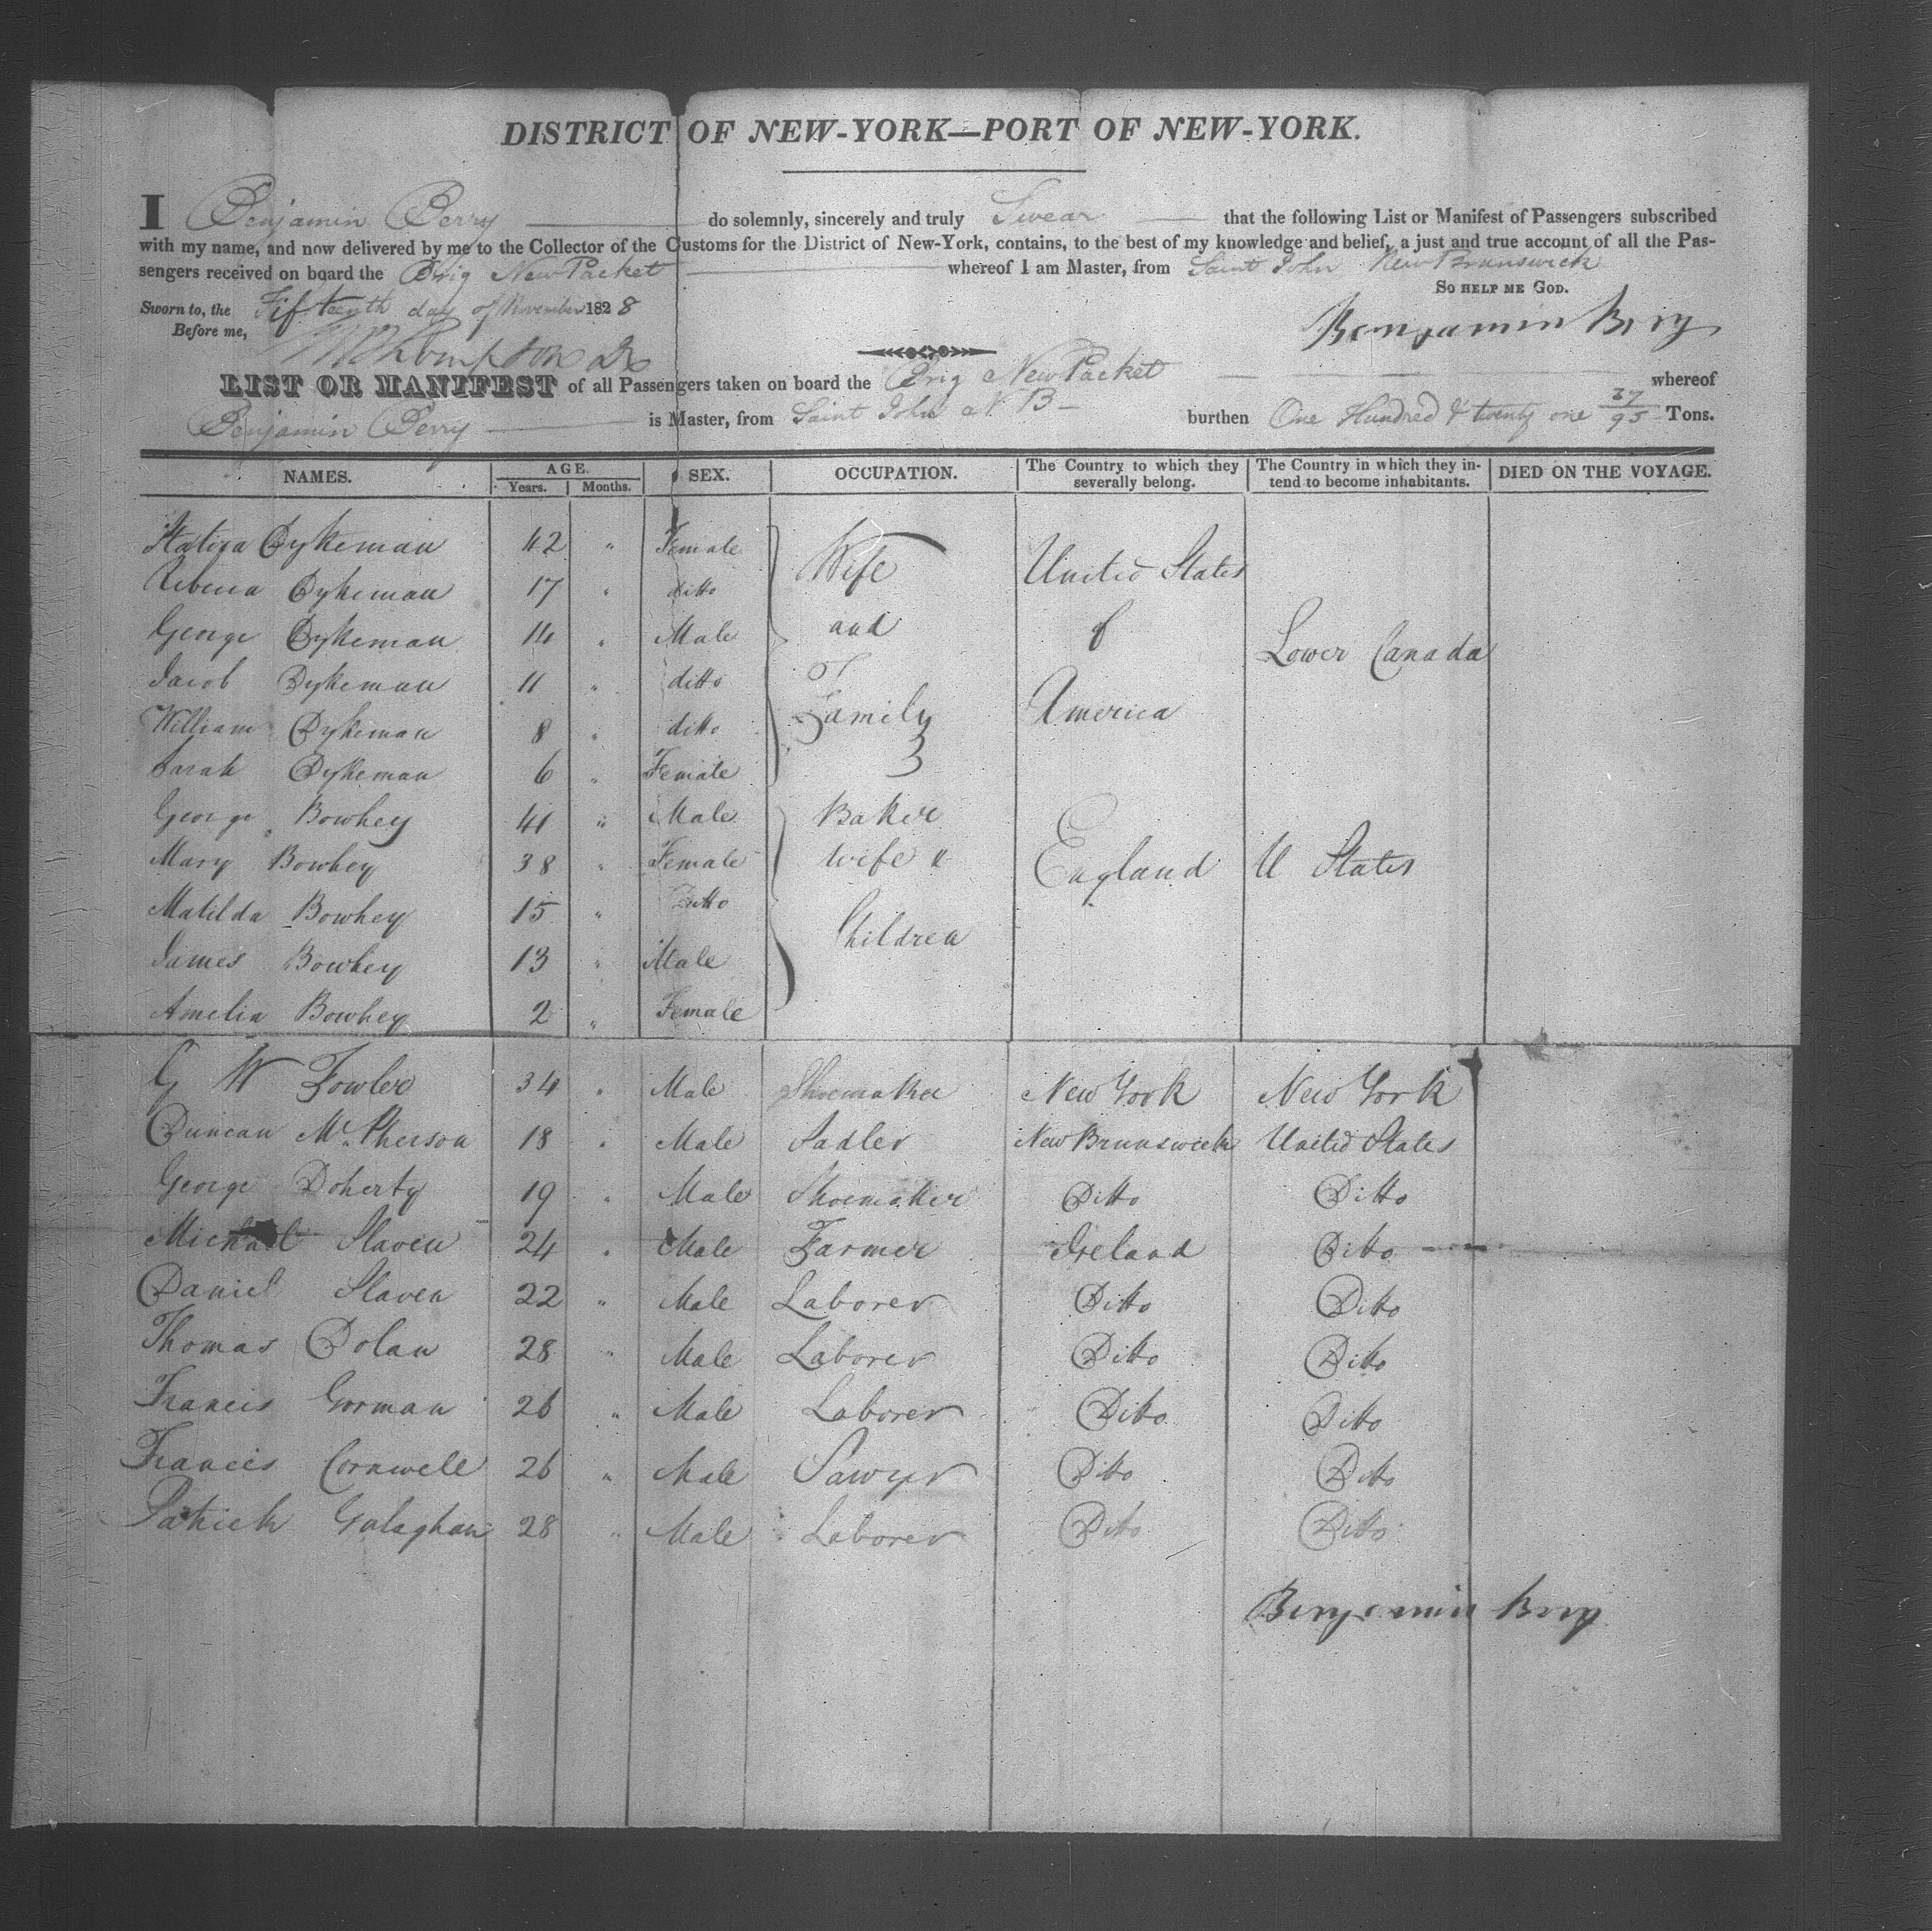 DISTRICT OF NEW-YORK—PORT OF NEW-YORK.
I Benjamin Perry do solemnly, sincerely and truly Swear that the following List or Manifest of Passengers subscribed
with my name, and now delivered by me to the Collector of the Customs for the District of New-York, contains, to the best of my knowledge and belief, a just and true account of all the Pas-
sengers received on board the Brig New Packet whereof I am Master, from Saint John New Brunswick
So help me God.
Sworn to, the Fifteenth day of November 1828
Before me,
Benjamin
LIST OR MANIFEST of all Passengers taken on board the Brig New Packet whereof
Benjamin Perry is Master, from Saint John N. B— burthen One Hundred & twenty one 37/95 Tons.
NAMES. AGE. Years. Months. SEX. OCCUPATION. The Country to which they severally belong. The Country in which they in-tend to become inhabitants. DIED ON THE VOYAGE.
Statira Dykeman 42 " Female Wife United States
Rebecca Dykeman 17 " ditto
George Dykeman 14 " Male and of Lower Canada
Jacob Dykeman 11 " ditto
William Dykeman 8 " ditto Family America
Sarah Dykeman 6 " Female
George Bowhey 41 " Male Baker
Mary Bowhey 38 " Female Wife & England U States
Matilda Bowhey 15 " Ditto
James Bowhey 13 " Male Children
Amelia Bowhey 2 " Female
G W Fowler 34 " Male Shoemaker New York New York
Duncan Mc.Pherson 18 " Male Sadler New Brunswick United States
George Doherty 19 " Male Shoemaker Ditto Ditto
Michael Slaven 24 " Male Farmer Ireland Ditto
Daniel Slaven 22 " Male Laborer Ditto Ditto
Thomas Dolan 28 " Male Laborer Ditto Ditto
Francis Gorman 26 " Male Laborer Ditto Ditto
Francis Cornwell 26 " Male Sawyer Ditto Ditto
Patrick Galaghan 28 " Male Laborer Ditto Ditto
Benjamin